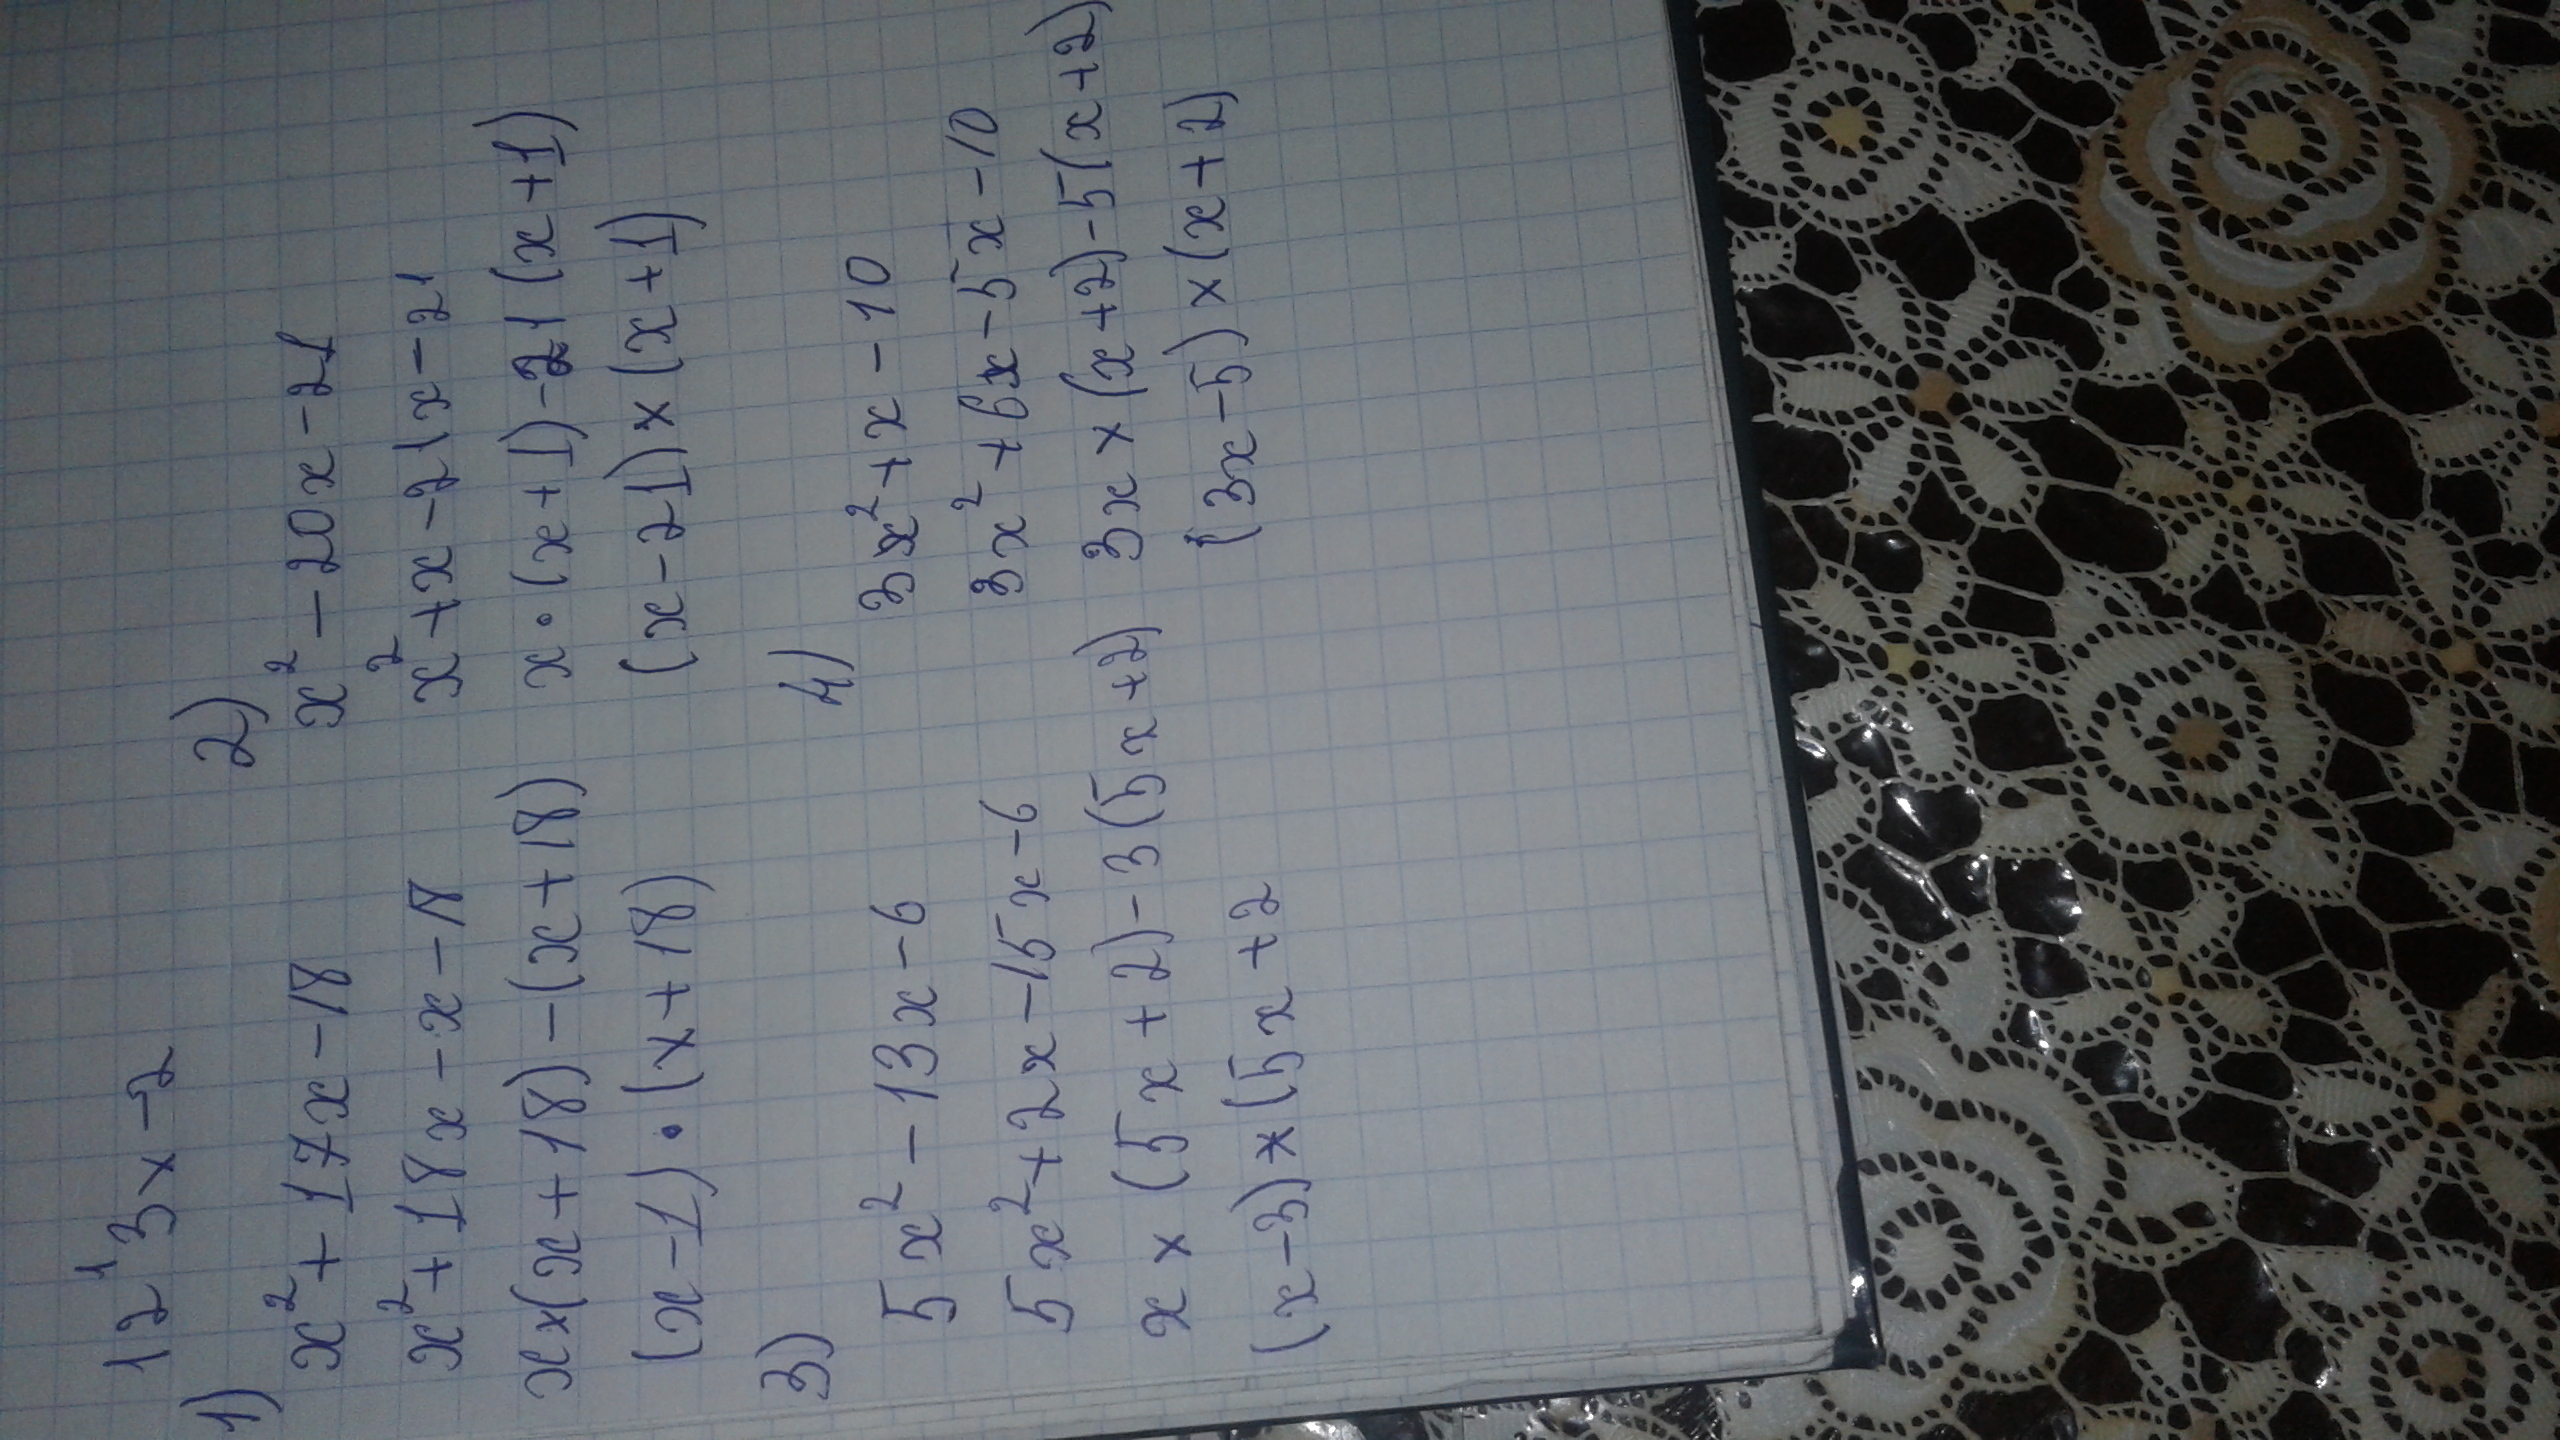 12¹ 3x-2
1)
x²+17x-18
x²+18x-x-18
x×(x+18)-(x+18)
(x-1)·(x+18)
2)
x²-20x-21
x²+x-21x-21
x·(x+1)-21(x+1)
(x-21)×(x+1)
3)
5x²-13x-6
5x²+2x-15x-6
x×(5x+2)-3(5x+2)
(x-3)×(5x+2
4)
3x²+x-10
3x²+6x-5x-10
3x×(x+2)-5(x+2)
(3x-5)×(x+2)